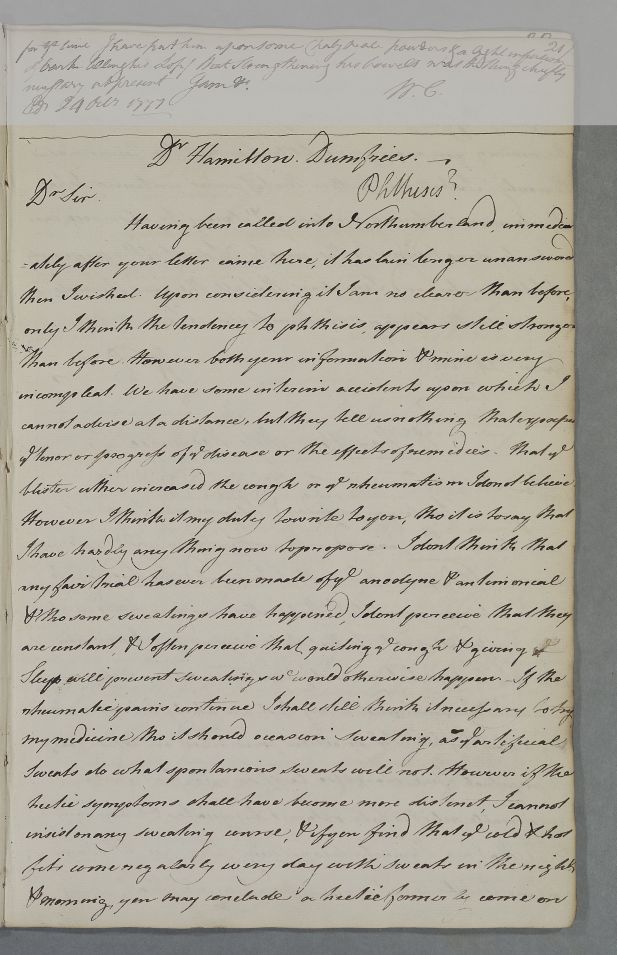 for yt time I have put him upon some Chalybeate powders & a light infusion 21
of bark
necessary at present I am &c.
Edr 24 Octr 1777 W. C.
Dr Hamilton. Dumfries.
Dr Sir. Phthisis?
Having been called into Northumberland, immedi
=ately after your letter came here, it has lain longer unanswered
then I wished. Upon considering it I am no clearer than before,
only I think the tendency to phthisis, appears still stronger
than before. However both your information & mine is very
incompleat. We have some interim accidents upon which I
cannot advise at a distance, but they tell us nothing that
ye tenor or progress of ye disease or the effects of remedies. That ye
blister either increased the cough or ye rheumatism I do not believe
However I think it my duty to write to you, tho it is to say that
I have hardly any thing now to propose. I dont think that
any fair trial has ever been made of ye anodyne & antimonial
& tho some sweatings have happened, I dont perceive that they
are constant, & I often perceive that, quieting ye cough & giving
Sleep will prevent sweatings wc would otherwise happen. If the
rheumatic pains continue I shall still think it necessary to try
my medicine tho it should occasion sweating, as ye artificial
sweats do what spontanious sweats will not. However if the
hectic symptoms shall have become more distinct, I cannot
insist on any sweating course, & if you find that ye cold & hot
fits come regularly every day with sweats in the night
& morning, you may conclude a hectic formed by come on